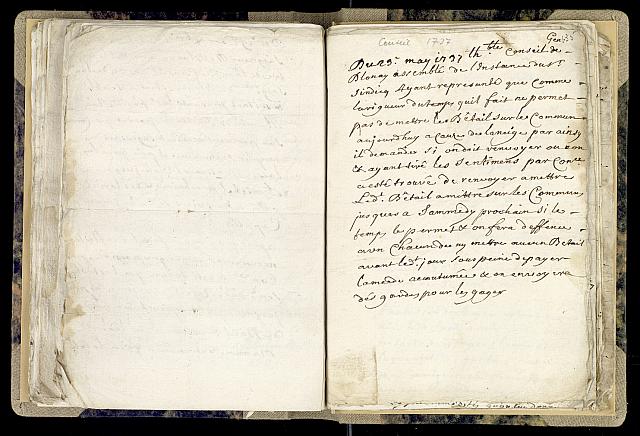 Conseil 1737
Du 23e may 1737 th ble Conseil de
Blonay assemblé de l'Instance du Sr
Sindicq Ayant representé que Comme
la rigueur du temps qu'il fait ne permet
pas de mettre le Bétail sur les Communs
aujourdhuy a Cause de la neige par ainsy
il demande si on doit renvoyer ou non
& ayant tiré les Sentimens par Conce
a esté trouvé de renvoyer a mettre
Led. Bétail a mettre sur les Communs
jusques a Sammedy prochain si le
temps le permet & on fera deffence
a un Chacun de ny mettre aucun Bétail
avant led. jour sous peine de payer
Lamende acoutumée & on envoyera
dés gardes pour les gager